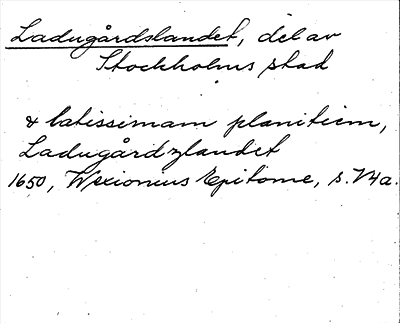 Ladugårdslandet, del av
Stockholms stad
& latissimam planitiem,
Ladugårdzlandet
1650, Wexionius Epitome, s.